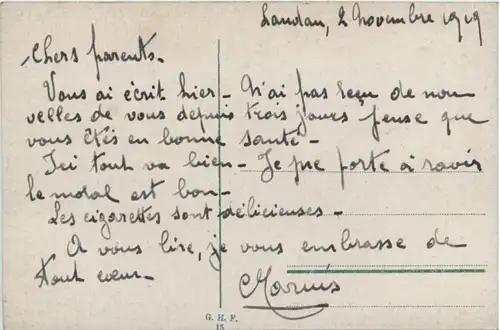 Landau, 2 Novembre 1919
Chers parents.
Vous ai écrit hier - N'ai pas reçu de nou
velles de vous depuis trois jours pense que
vous êtes en bonne santé -
Ici tout va bien - Je me porte à ravir
le moral est bon -
Les cigarettes sont délicieuses -
A vous lire, je vous embrasse de
tout cœur -
Marius
G. H. F.
15